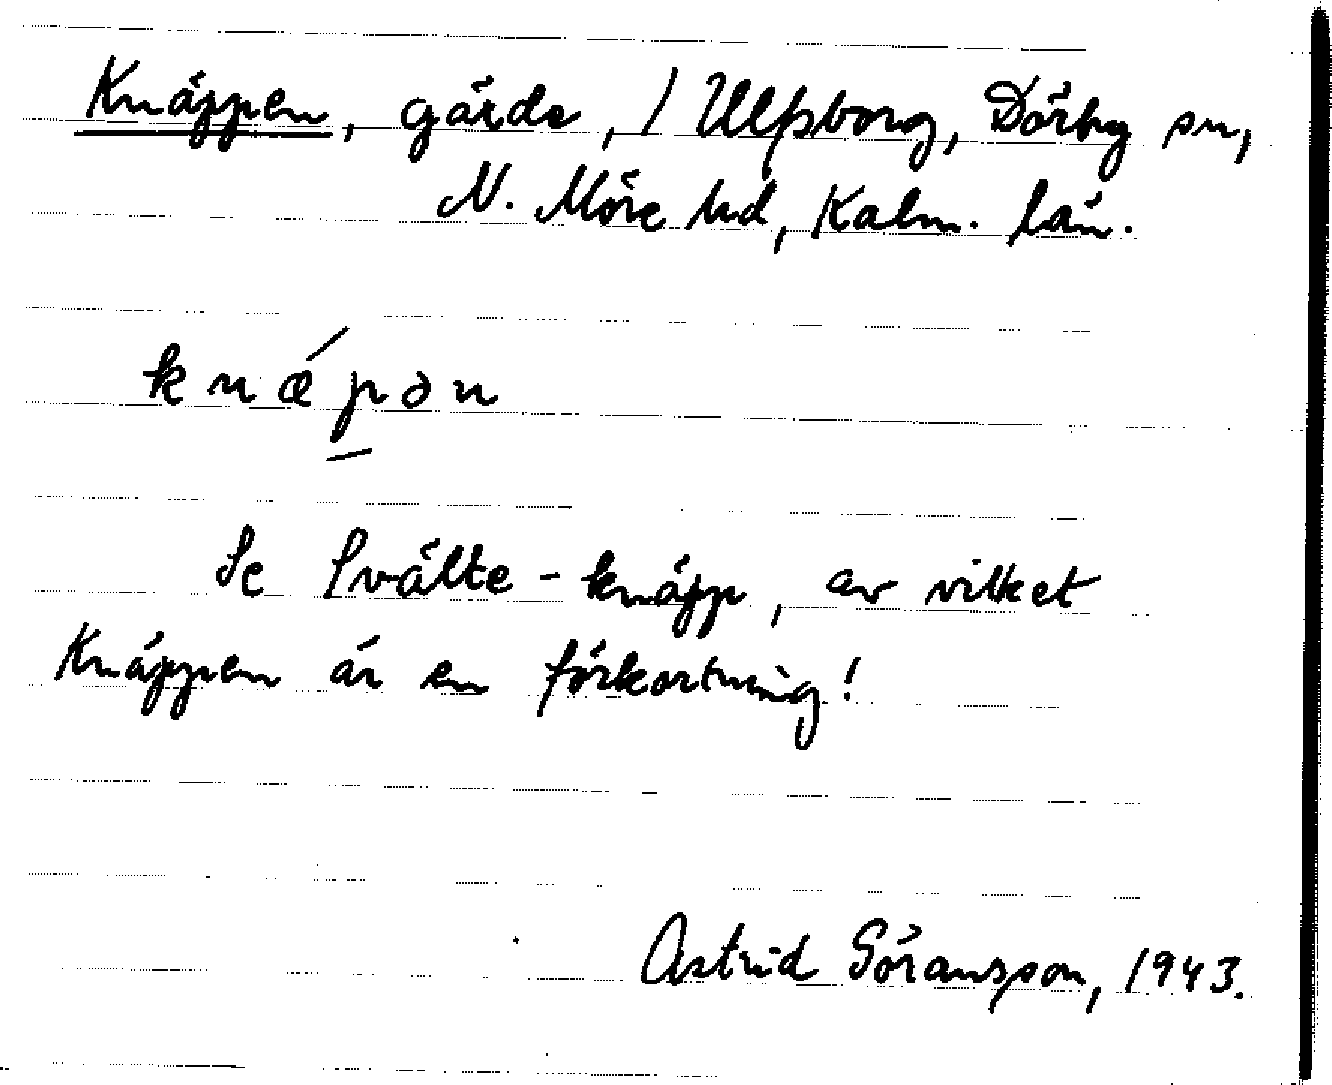 Knäppen, gärde, / Ulfsborg, Dörby sn,
N. Möre hd, Kalm. län.
knæ´pən
Se Svälte-knäpp, av vilket
Knäppen är en förkortning!
Astrid Göransson, 1943.